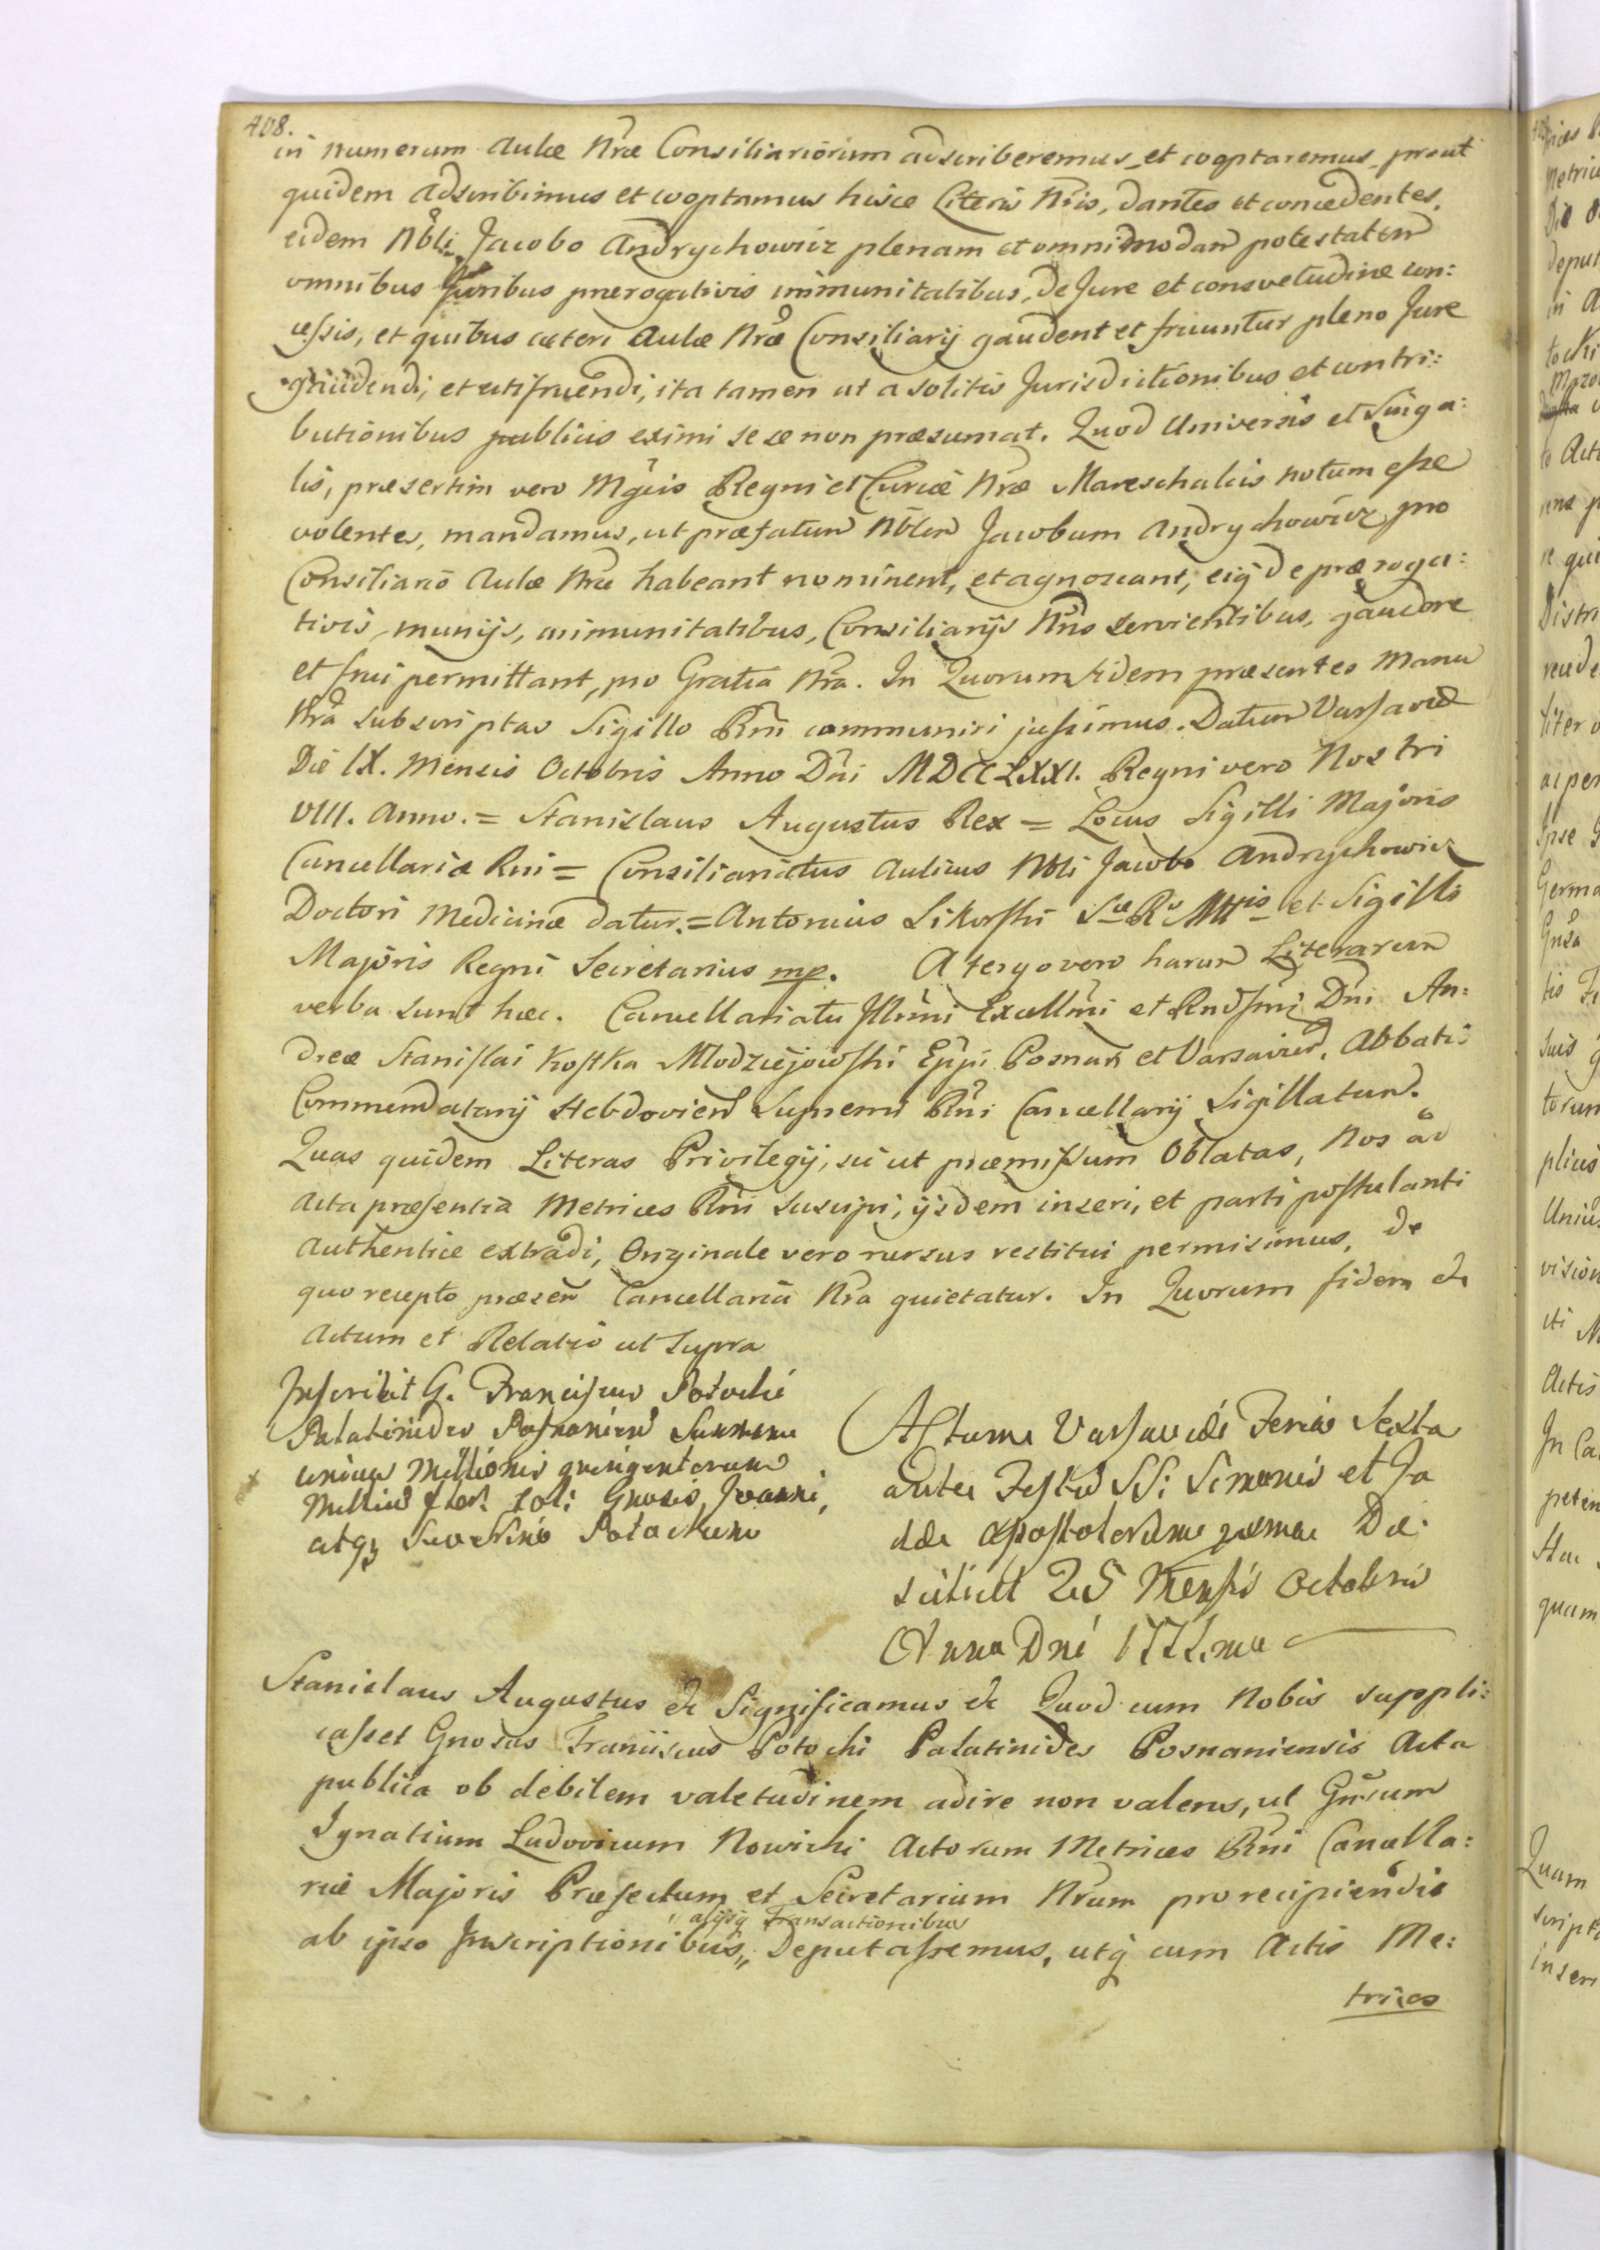 408.
in numerum Aulæ Nræ Consiliariorum adscriberemus et cooptaremus, prout
quidem adscribimus et cooptamus hisce Literis Nris, dantes et concedentes,
eidem Nbli Jacobo Andrychowicz plenam et omnimodam potestatem
omnibus Juribus prærogativis immunitatibus, de Jure et consvetudine con:
cessis, et quibus cæteri Aulæ Nræ Consiliarij gaudent et fruuntur pleno Jure
gaudendi, et utifruendi, ita tamen ut a solitis Jurisdictionibus et contri:
butionibus publicis eximi sese non præsumat. Quod Universis et Singu:
lis, præsertim vero Mgcis Regni et Curiæ Nræ Mareschalcis notum esse
volentes, mandamus, ut præfatum Nblem Jacobum Andrychowicz pro
Consiliario Aulæ Nræ habeant nominent, et agnoscant, eiq̃ de præroga:
tivis, munijs, immunitatibus, Consiliarijs Nris servientibus, gaudere
et frui permittant, pro Gratia Nra. In Quorum fidem præsentes Manu
Nra subscriptas Sigillo Rni communiri jussimus. Datum Varsaviæ
Die IX. Mensis Octobris Anno Dni MDCCLXXI. Regni vero Nostri
VIII. Anno. = Stanislaus Augustus Rex = Locus Sigilli Majoris
Cancellariæ Rni = Consiliariatus Aulicus Nbli Jacobo Andrychowicz
Doctori Medicinæ datur. = Antonius Sikorski Scæ Rs Mttis et Sigilli
Majoris Regni Secretarius mp. A tergo vero harum Literarum
verba sunt hæc. Cancellariatu Illmi Excellmi et Rndsmi Dni An:
dreæ Stanislai Kostka Młodziejowski Eppi Posnan et Varsavien, Abbatis
Commendatarij Hebdovien Supremi Rni Cancellarij Sigillatum.
Quas quidem Literas Privilegij, sic ut præmissum Oblatas, Nos ad
Acta præsentia Metrices Rni suscipi, ijsdem inseri, et parti postulanti
authentice extradi, Originale vero rursus restitui permisimus, de
quo recepto præsen Cancellaria Nra quietatur. In Quorum fidem etc
Actum et Relatio ut supra
Inscribit G. Franciscus Potocki
Palatinides Posnanien Summam
unius Millionis quingentorum
Millium flor. Pol: Gnosis Joanni,
atq3 Severino Potockim
Actum Varsaviæ Feria Sexta
ante Festum SS: Simonis et Ju
dæ Apostolorum proxima Die
scilicet 25 Mensis Octobris
Anno Dni 1771mo
Stanislaus Augustus etc Significamus etc Quod cum Nobis suppli:
casset Gnosus Franciscus Potocki Palatinides Posnaniensis Acta
publica ob debilem valetudinem adire non valens, ut Gnosum
Ignatium Ludovicum Nowicki Actorum Metrices Rni Cancella:
riæ Majoris Præfectum et Secretarium Nrum pro recipiendis
alijsq̃ Transactionibus
ab ipso Inscriptionibus,, Deputassemus, utq̃ cum Actis Me:
trices